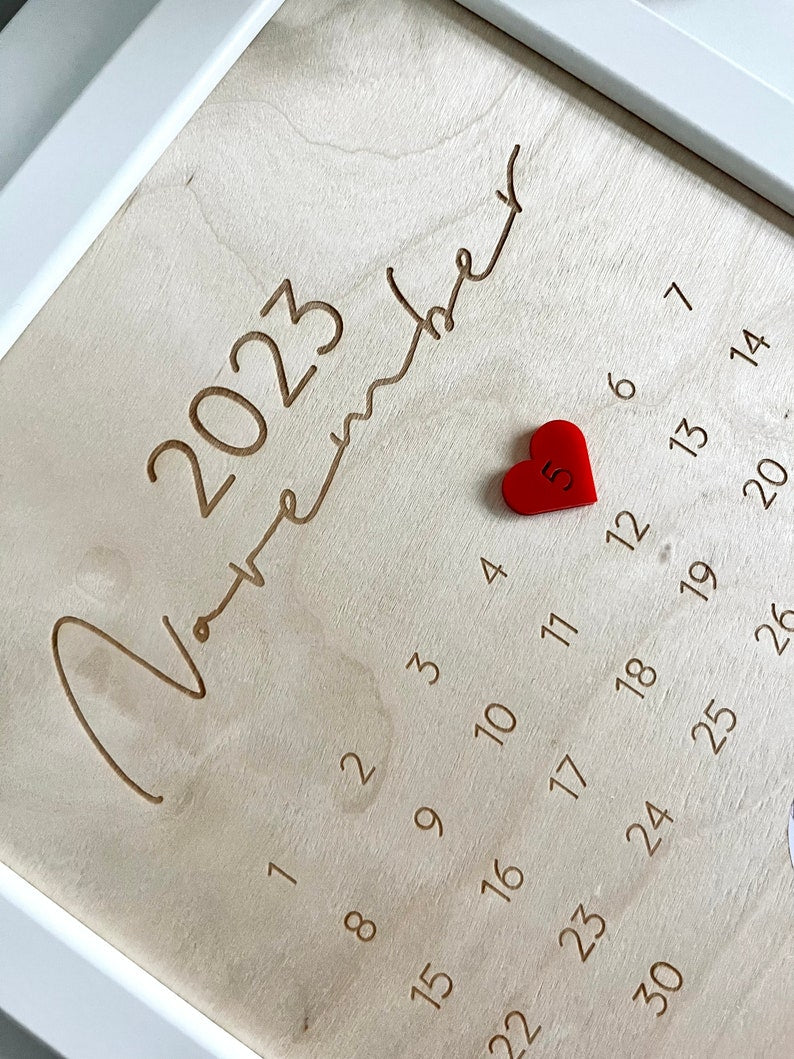 2023
November
1 2 3 4 5 6 7
8 9 10 11 12 13 14
15 16 17 18 19 20
22 23 24 25 26
30